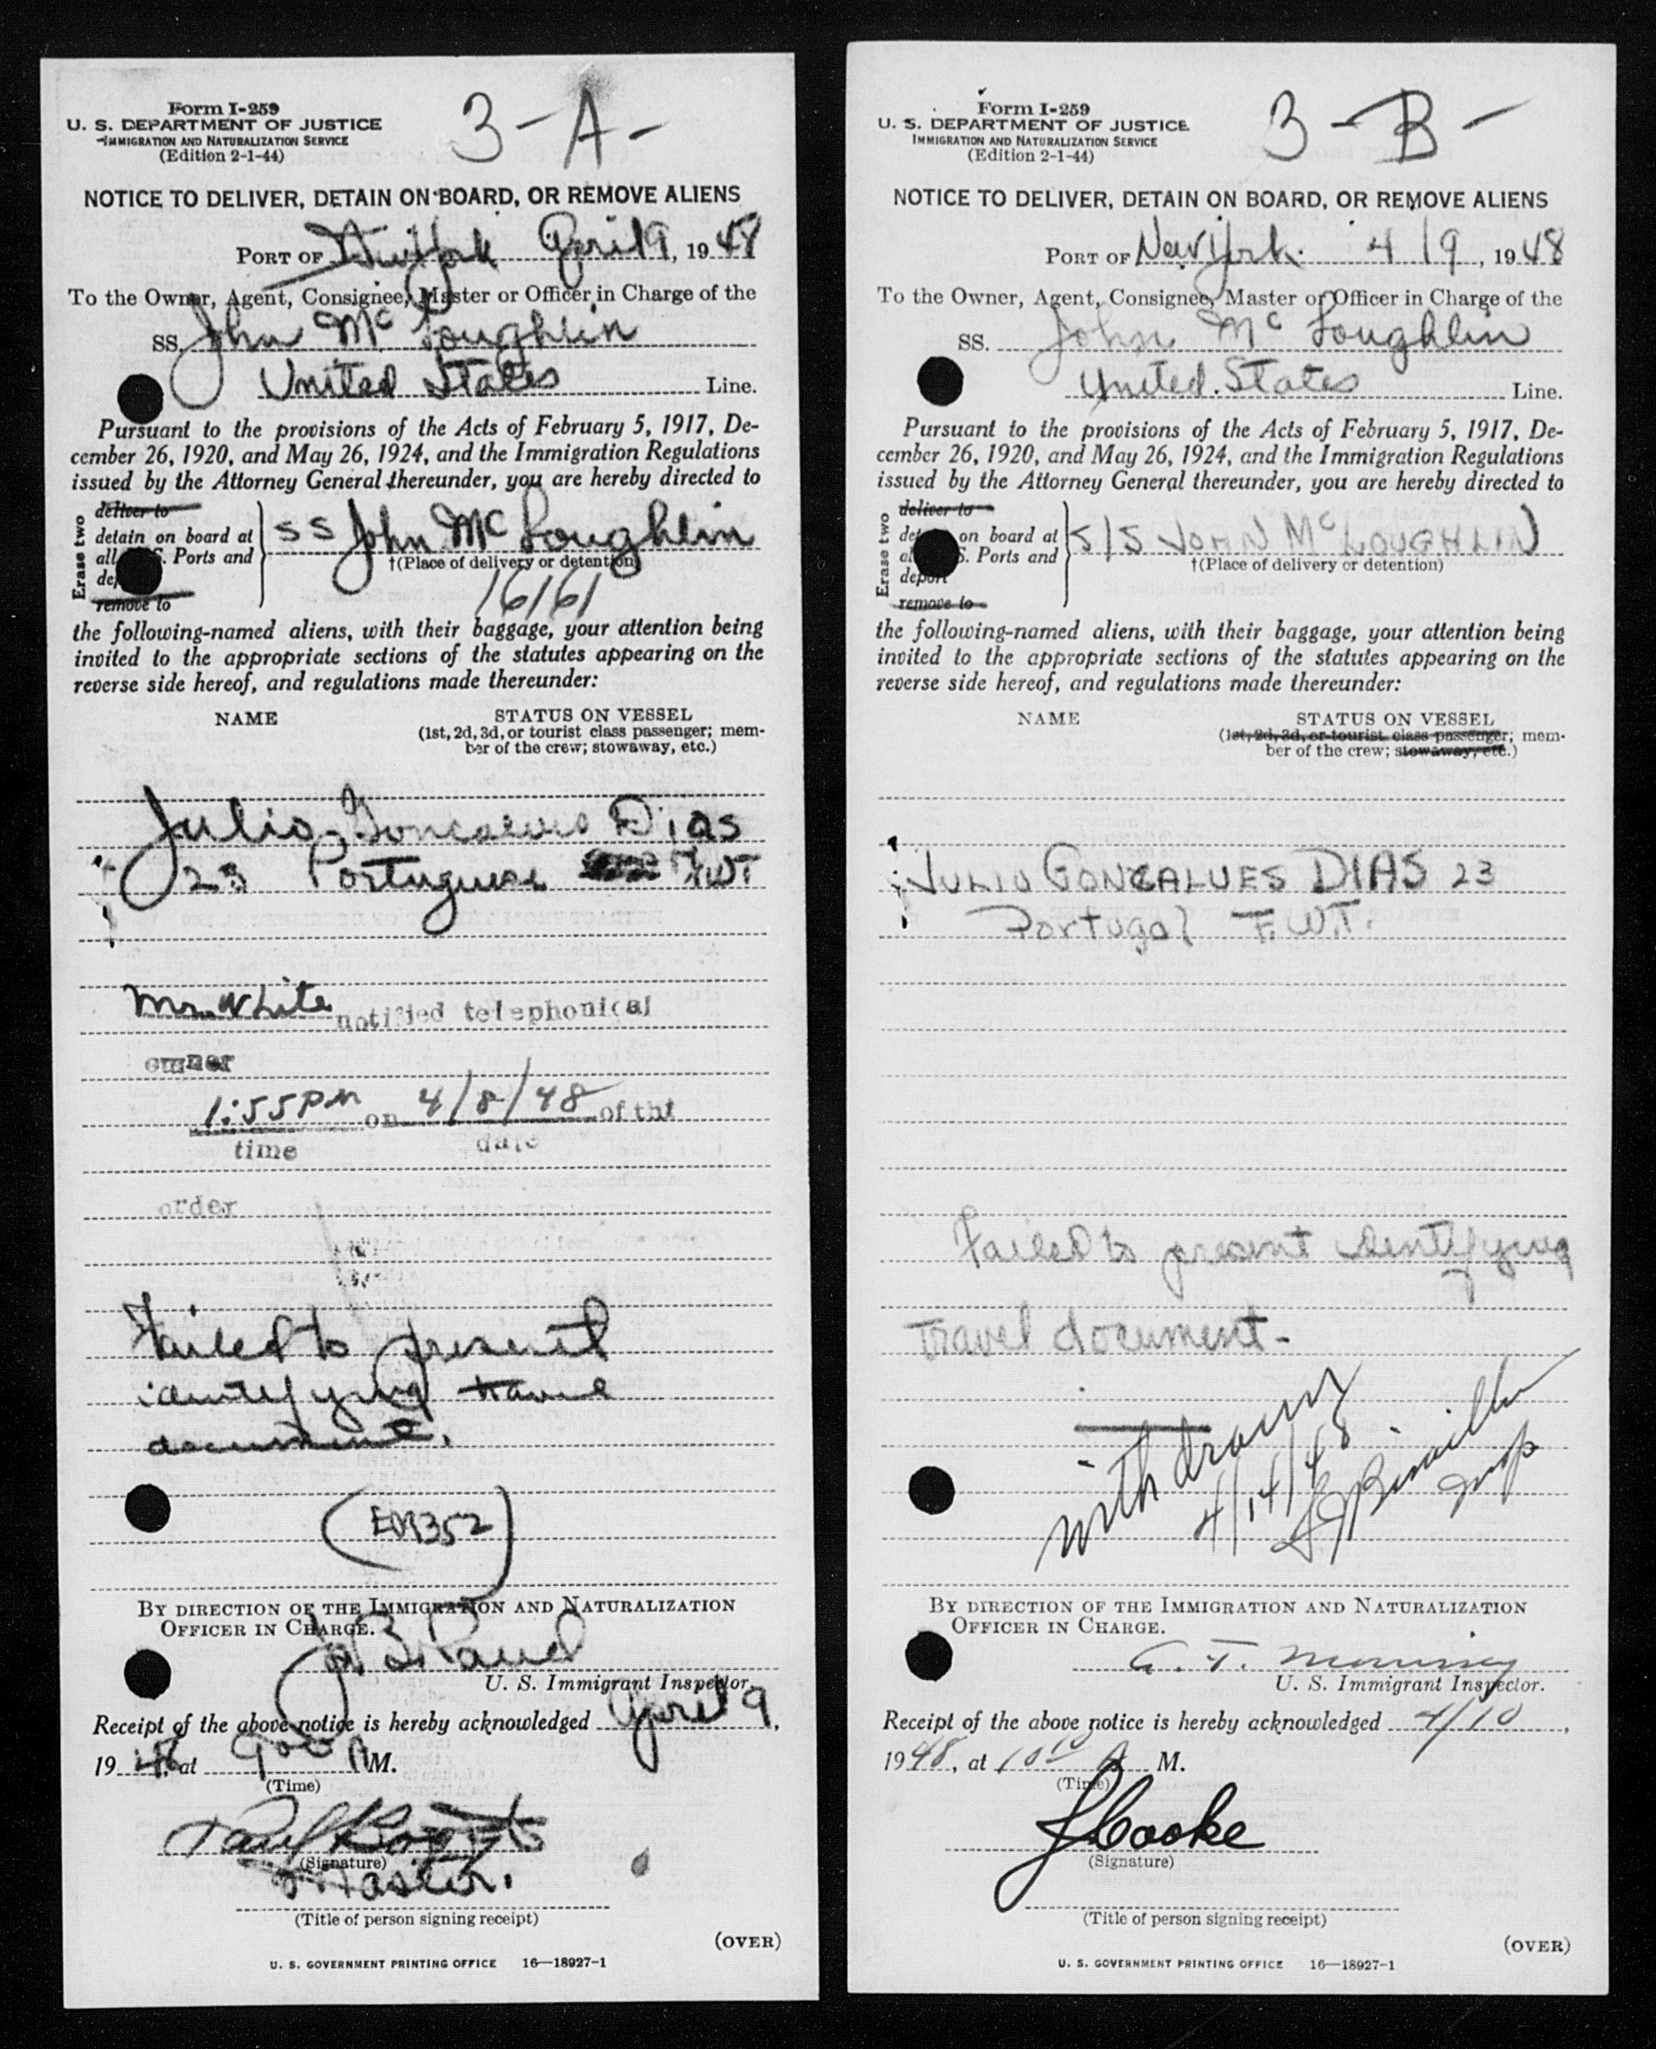 Form I-259
U. S. DEPARTMENT OF JUSTICE
IMMIGRATION AND NATURALIZATION SERVICE
(Edition 2-1-44)
3-A-
NOTICE TO DELIVER, DETAIN ON BOARD, OR REMOVE ALIENS
PORT OF New York April 9, 1948
To the Owner, Agent, Consignee, Master or Officer in Charge of the
SS. John McLoughlin
United States Line.
Pursuant to the provisions of the Acts of February 5, 1917, De-
cember 26, 1920, and May 26, 1924, and the Immigration Regulations
issued by the Attorney General thereunder, you are hereby directed to
Erase two
deliver to
detain on board at
all S. Ports and
remove to
SS John McLoughlin
†(Place of delivery or detention)
16161
the following-named aliens, with their baggage, your attention being
invited to the appropriate sections of the statutes appearing on the
reverse side hereof, and regulations made thereunder:
NAME STATUS ON VESSEL
(1st, 2d, 3d, or tourist class passenger; mem-
ber of the crew; stowaway, etc.)
Julio Goncalves Dias
23 Portuguese FWT
Mr. White notified telephonical
owner
1:55 PM on 4/8/48 of tht
time date
order
Failed to present
identifying travel
document.
BY DIRECTION OF THE IMMIGRATION AND NATURALIZATION
OFFICER IN CHARGE.
U. S. Immigrant Inspector.
Receipt of the above notice is hereby acknowledged April 9,
1948, at 900 A M.
(Time)
Paul
(Signature)
Master.
(Title of person signing receipt)
(OVER)
U. S. GOVERNMENT PRINTING OFFICE 16—18927-1
Form I-259
U. S. DEPARTMENT OF JUSTICE
IMMIGRATION AND NATURALIZATION SERVICE
(Edition 2-1-44)
3-B-
NOTICE TO DELIVER, DETAIN ON BOARD, OR REMOVE ALIENS
PORT OF New York 4/9, 1948
To the Owner, Agent, Consignee, Master or Officer in Charge of the
SS. John McLoughlin
United States Line.
Pursuant to the provisions of the Acts of February 5, 1917, De-
cember 26, 1920, and May 26, 1924, and the Immigration Regulations
issued by the Attorney General thereunder, you are hereby directed to
Erase two
deliver to
on board at
S. Ports and
deport
remove to
S/S JOHN McLOUGHLIN
†(Place of delivery or detention)
the following-named aliens, with their baggage, your attention being
invited to the appropriate sections of the statutes appearing on the
reverse side hereof, and regulations made thereunder:
NAME STATUS ON VESSEL
(1st, 2d, 3d, or tourist class passenger; mem-
ber of the crew; stowaway, etc.)
JULIO GONCALUES DIAS 23
Portugal F.W.T.
Failed to present identifying
travel document-
withdrawn
4/14/48
insp
BY DIRECTION OF THE IMMIGRATION AND NATURALIZATION
OFFICER IN CHARGE.
U. S. Immigrant Inspector.
Receipt of the above notice is hereby acknowledged 4/10,
1948, at 1010 A M.
(Time)
Cooke
(Signature)
(Title of person signing receipt)
(OVER)
U. S. GOVERNMENT PRINTING OFFICE 16—18927-1